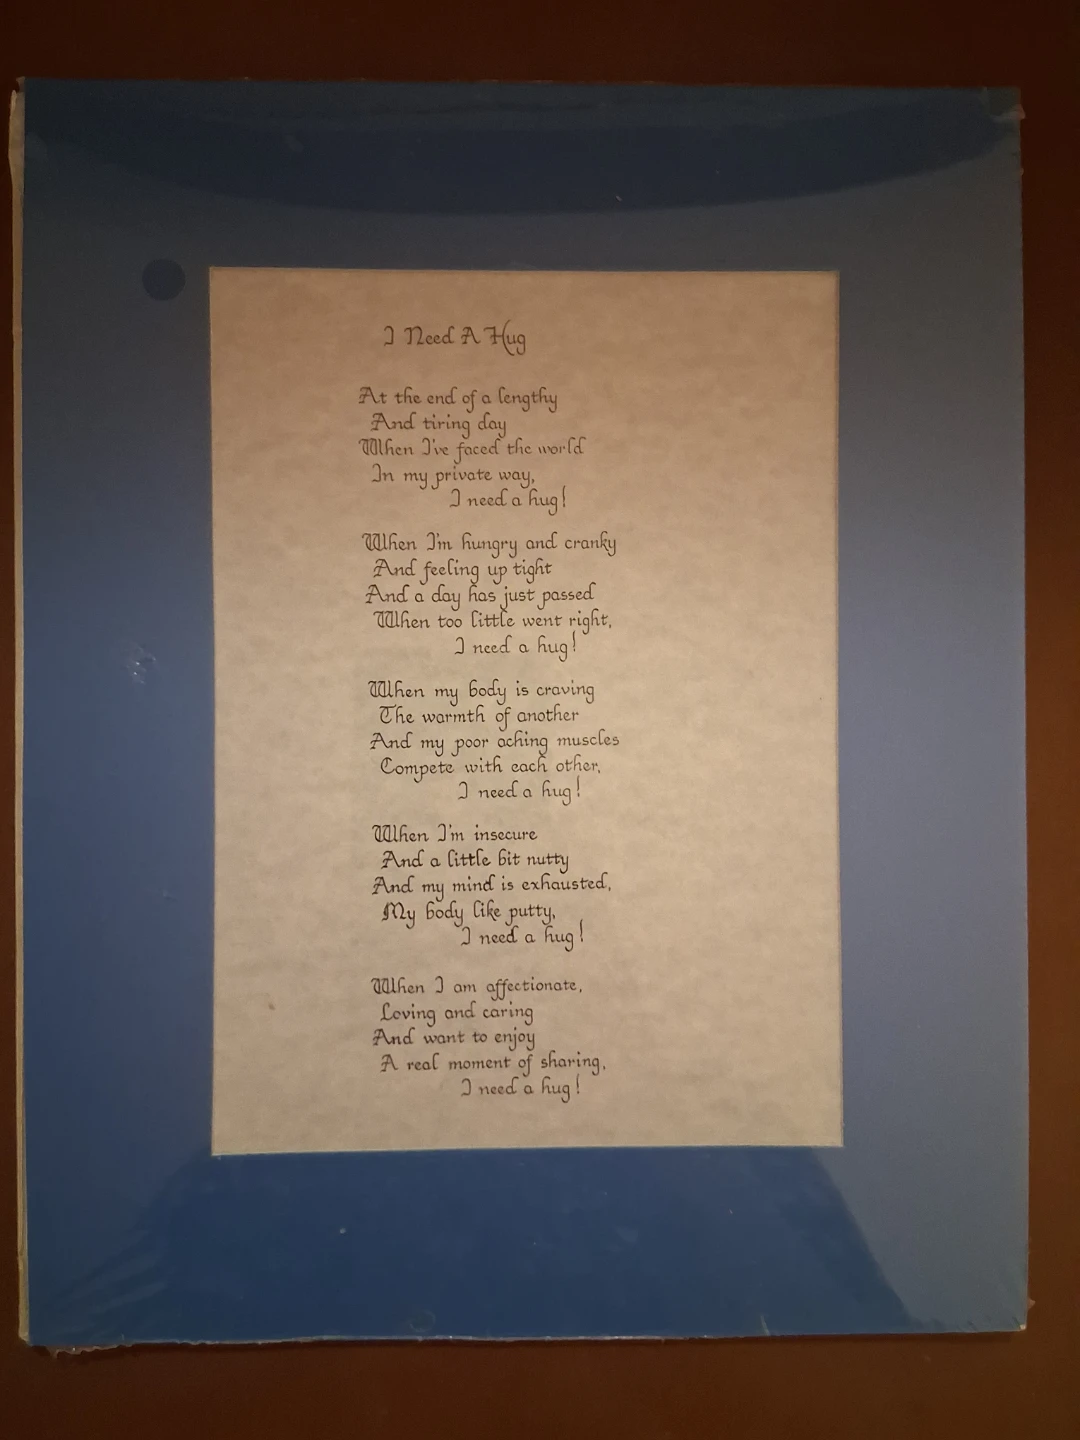 I Need A Hug
At the end of a lengthy
And tiring day
When I've faced the world
In my private way,
I need a hug!
When I'm hungry and cranky
And feeling up tight
And a day has just passed
When too little went right,
I need a hug!
When my body is craving
The warmth of another
And my poor aching muscles
Compete with each other,
I need a hug!
When I'm insecure
And a little bit nutty
And my mind is exhausted,
My body like putty,
I need a hug!
When I am affectionate,
Loving and caring
And want to enjoy
A real moment of sharing,
I need a hug!